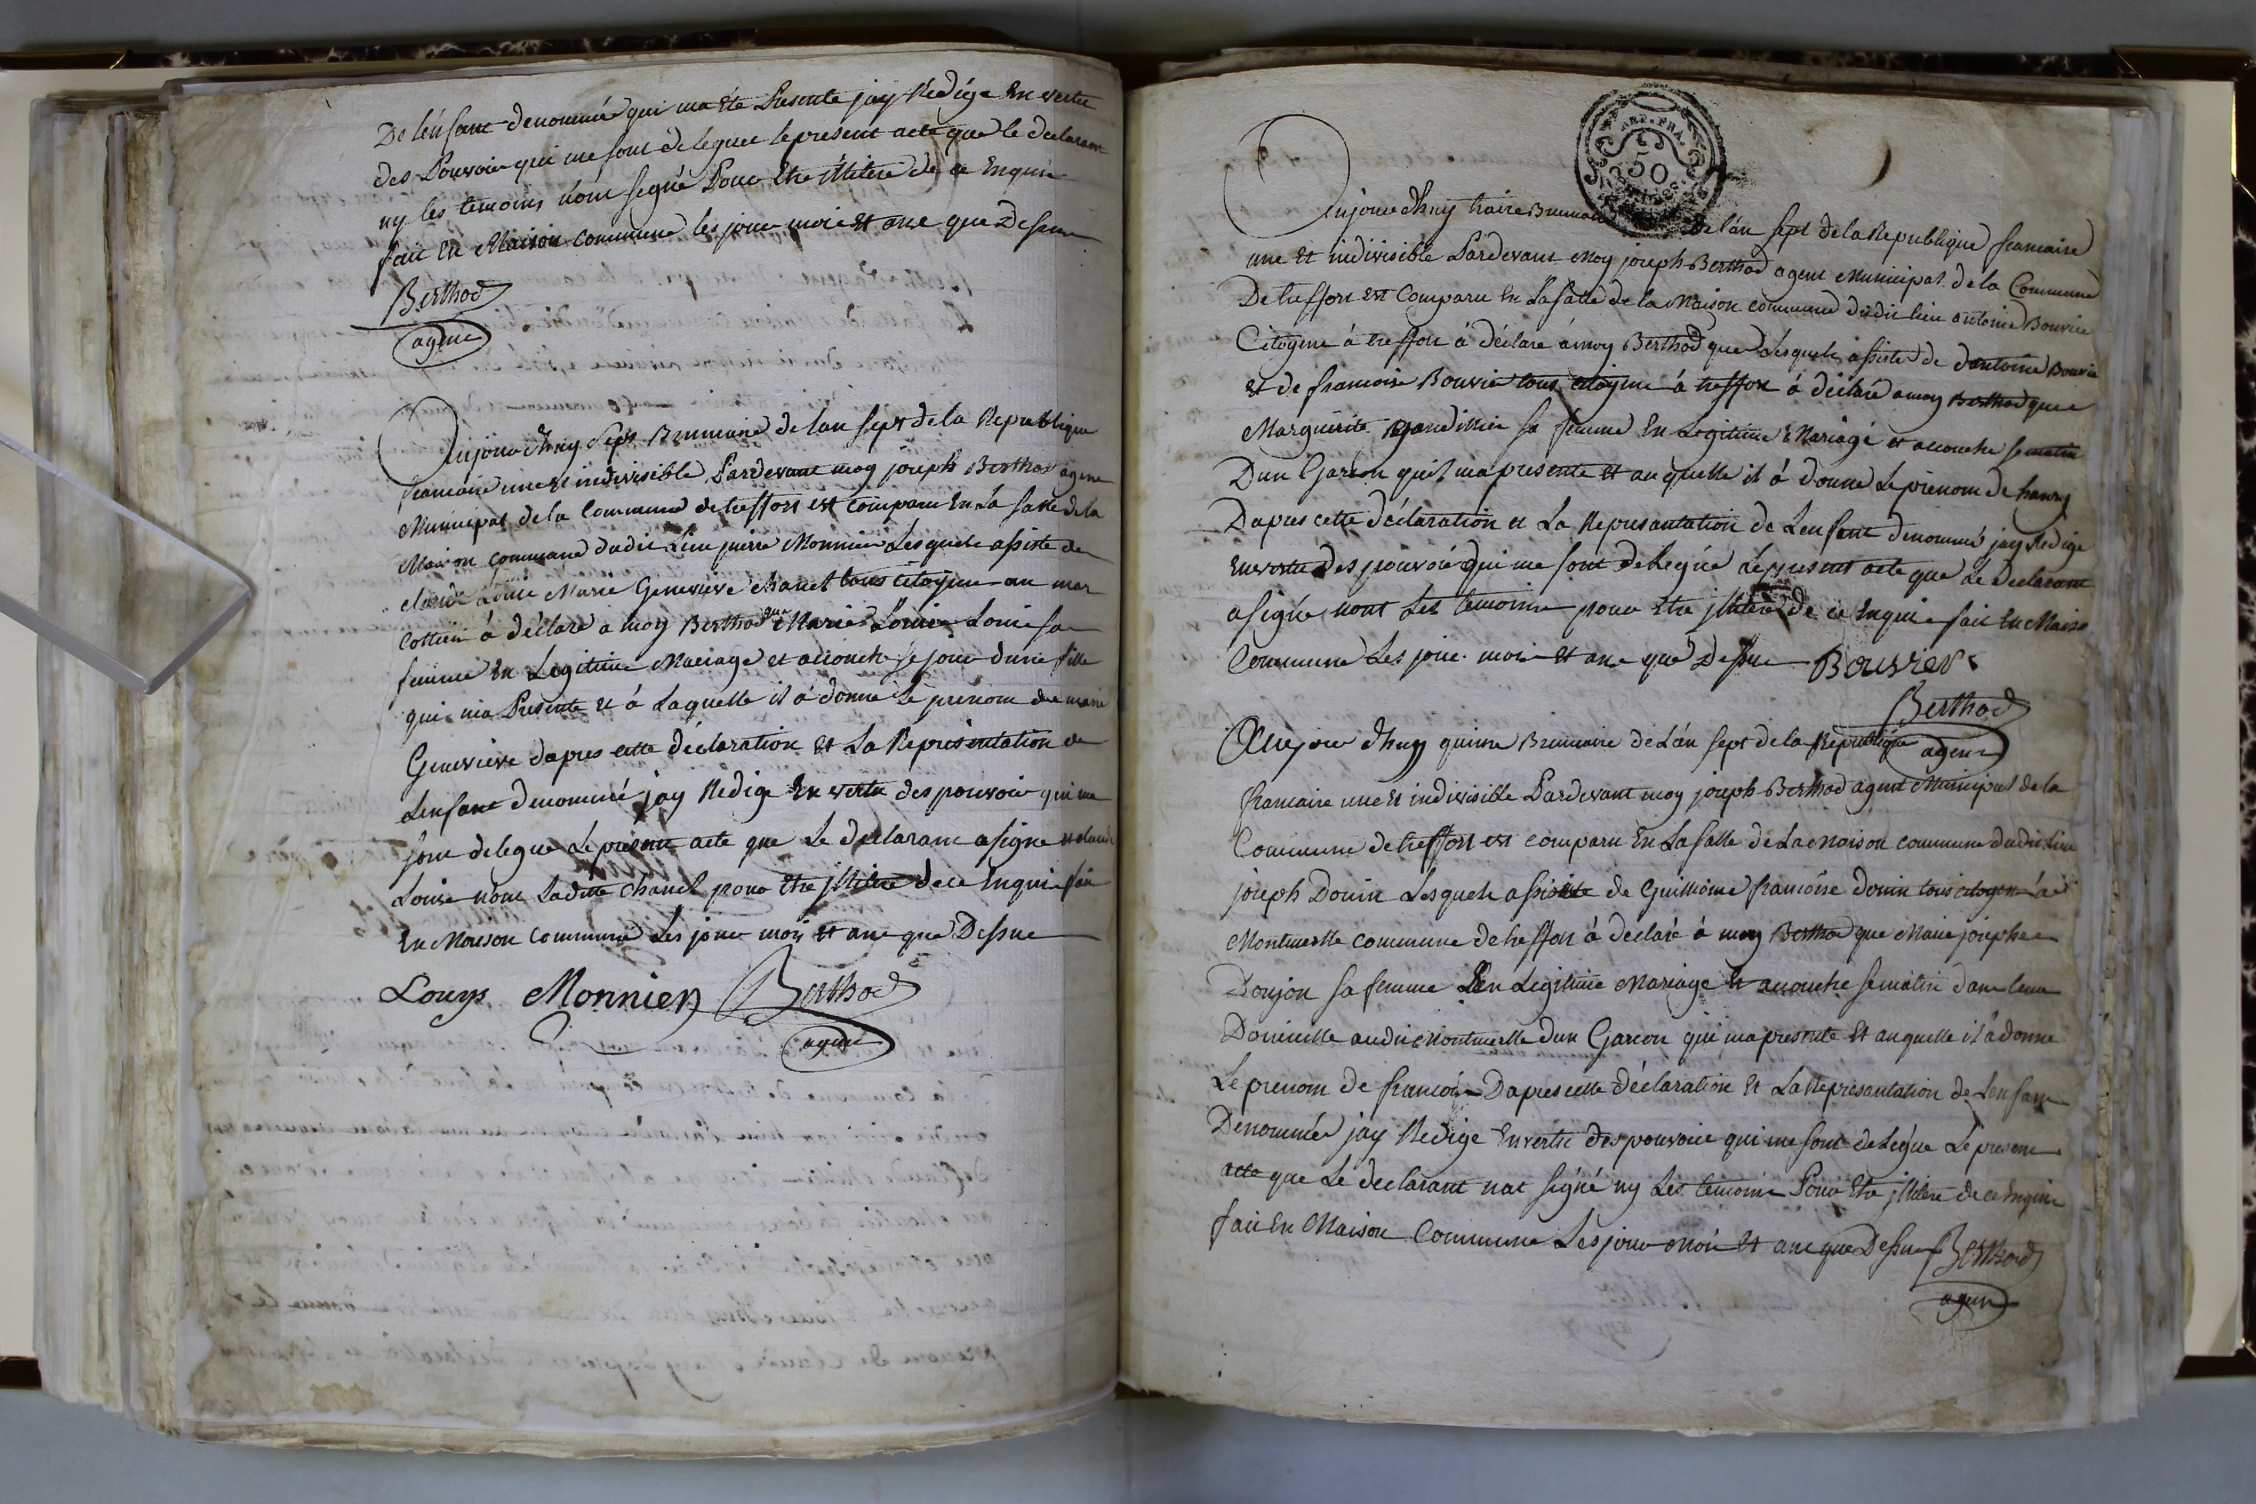 De lénfant denommé qui ma été Presente jay Rédige En vertu
des Pouvoir qui me sont délegue le present acte que le declarant
ny les temoins n'ont segné Pour Etre illitere de ce Enquis
fait En Maison commune les jour mois et ane que Dessu
Berthod
agent
Aujourdhuy Sept Brumaire de lan sept de la Republique
francaise une et indivisible Pardevant moy joseph Berthod agent
Municipal de la Commune de treffort est comparu En la salle de la
Maison commune dudit Lieu pierre Monnier Lesquels assiste de
claude Louis Marie Genevieve chanel tous citoyens au mar
à déclaré a moy Berthod que Marie Louise Louis sa
femme En Legitime Mariage et accouche se jour dune fille
qui ma Presente et á Laquelle il a donne Le prenom de marie
Genevieve dapres cette déclaration et La Représentation de
Lenfant denommé jay Redige En vertu des pouvoir qui me
sont delegue Le présent acte que Le declarant a signe et claude
Louis nont Ladite chanel pour Etre jllitere de ce Enquis fait
En Maison commune Les jour mois et ane que Dessu
Louys Monnier Berthod
agent
REP. FRA.
50
Aujourdhuy traise Brumaire de lán sept de la Republique francaise
une et indivisible Pardevant Moy joseph Berthod agent Municipal de la Commune
De treffort est Comparu En La salle de la Maison commune dudit lieu antoine Bouvier
Citoyens à treffort à déclaré à moy Berthod que Lesquels assiste de dantoine Bouvier
et de francoise Bouvier tous citoyens à treffort à déclaré a moy Berthod que
Marguérite sa femme En Legitime Mariage et accouche se matin
Dun Garcon quil ma presente et au quelle il à donne Le prenom de hanry
Dapres cette déclaration et La Represantation de Lenfant denommé jay Redige
En vertu des pouvoir qui me sont delegué Le present acte que Le Declarant
a signé nont Les temoins pour Etre jllitere de ce Enquis fait En Maison
Commune Les jour mois et ane que Dessu Bouvier
Berthod
agent
Aujourdhuy quinse Brumaire de Lán sept de la Republique
francaise une et indivisible Pardevant moy joseph Berthod agent Municipal de la
Commune de treffort est comparu En La salle de La Maison commune dudit lieu
joseph Douin Lesquels assiste de Guillaume francoise Douin tous citoyens à
Montmerlle commune de treffort à déclaré à moy Berthod que Marie josephe
Doujon sa femme En Légitime Mariage et accouche se matin dans leur
Domicille audit Montmerlle dun Garcon qui ma presente et au quelle il à donne
Le prenom de francois Dapres cette déclaration et La Represantation de Lenfant
Denommé jay Redige En vertu des pouvoir qui me sont delégue Le present
acte que Le declarant nat signé ny Les temoins Pour Etre jllitere de ce Enquis
fait En Maison Commune Les jour mois et ane que Dessu Berthod
agent